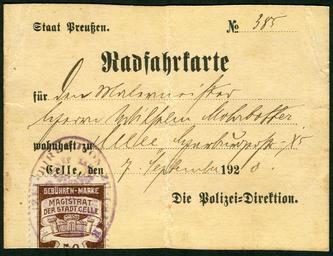 Staat Preußen. № 385
Radfahrkarte
für den Malermeister
Herrn Wilhelm Mohrbotter
wohnhaft zu Celle,
Celle, den 7. September 1920.
Die Polizei-Direktion.
GEBÜHREN-MARKE
MAGISTRAT
DER STADT CELLE
50